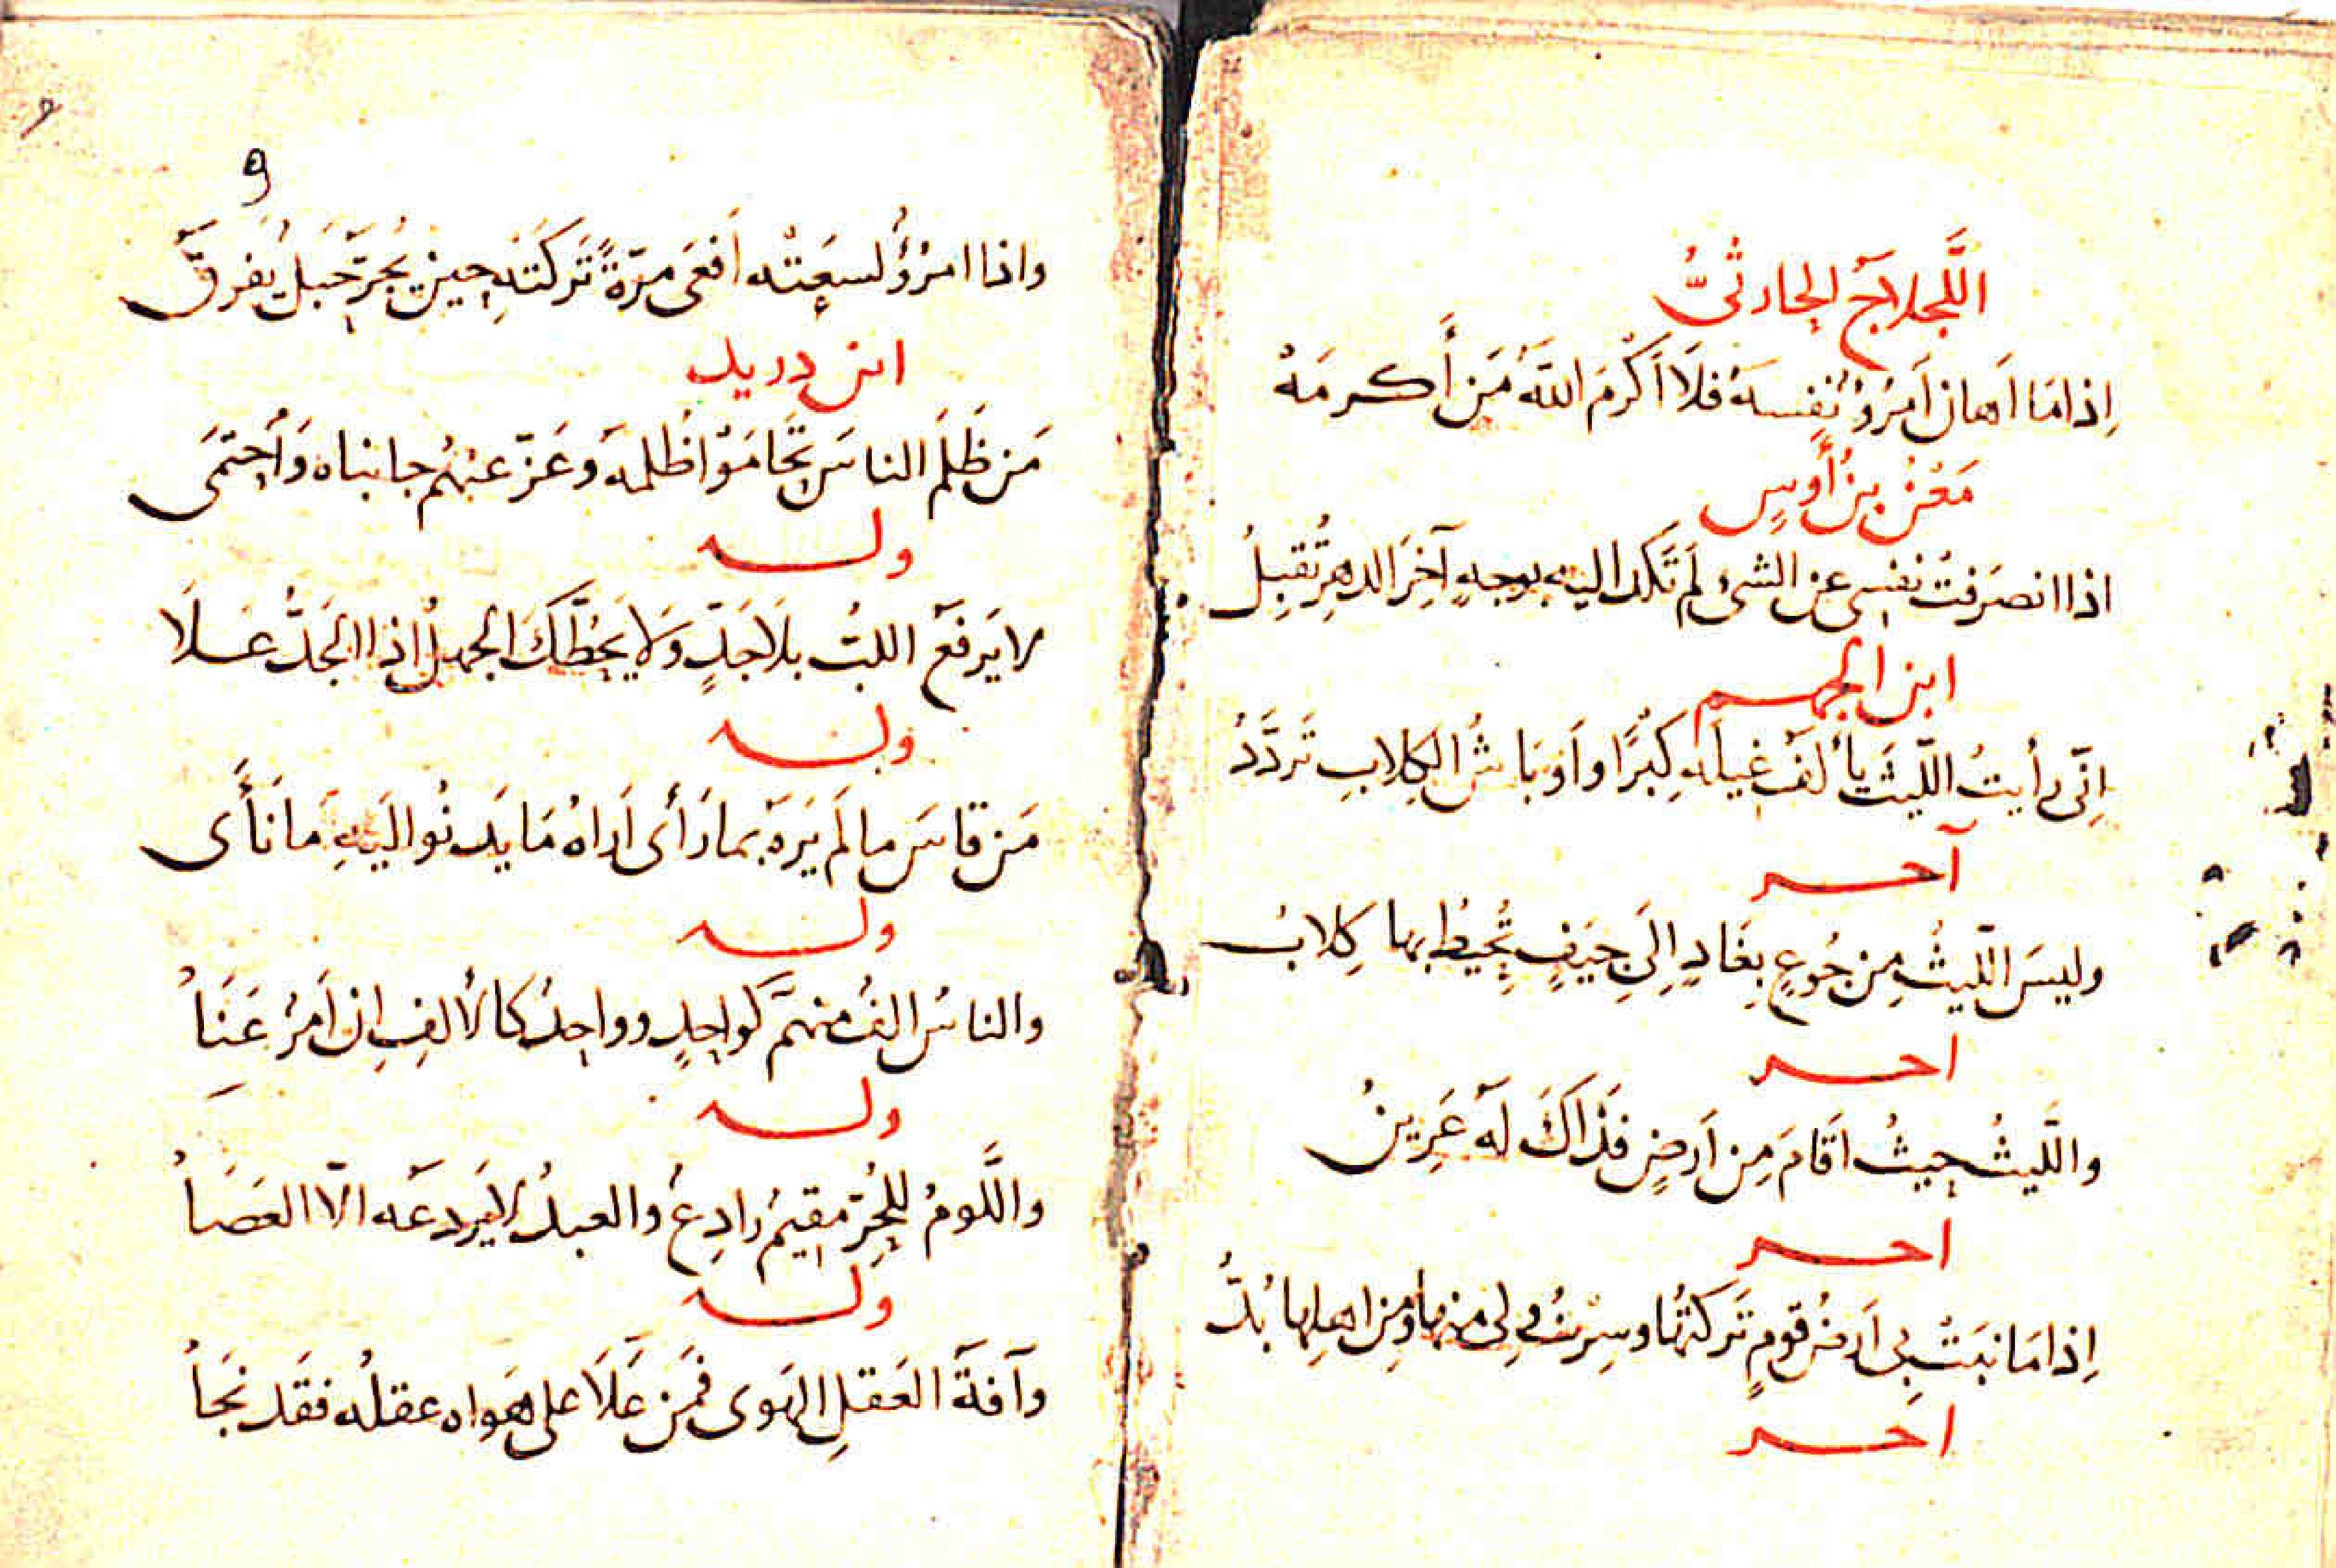 اللَّجلاجُ الحارثىُّ
اِذا مَا اَهان اَمرُؤٌ نفسَهُ فلَا اَكْرَمَ اللهُ مَن أَكرمَهْ
مَعْنُ بنُ أَوسٍ
اذا انصَرفتْ نفسى عن الشىءِ لَم تَكد اليه بوجهٍ آخِرَ الدهرِ تُقبِلُ
ابن الجهم
اِنّى رأيتُ اللّيثَ يألَفُ غيلَهِ كِبْرًا واَوبَاشُ الكِلابِ تَردَّدُ
آخر
وليسَ اللّيثُ مِن جُوعٍ بِغَادٍ اِلَى جيَفٍ تُحِيطُ بها كِلابُ
اخر
والَّليثُ حيثُ اَقَامَ مِن اَرضٍ فَذَاكَ لَهُ عَرِينُ
اخر
اِذا مَا نبَتْ بى اَرضُ قومٍ تَركتُها وسِرْتُ ولى منها ومِن اهلِها بُدُّ
اخر
9
واذا امرُؤٌ لسعَتْه اَفعَى مرّةً تَركَتْه حين يُجرّ حَبل يَفرقُ
ابن دريد
مَن ظَلَمَ الناسَ تَحَامَوْا ظُلمَه وَعَزّ عنهُم جانباه وَأحتمَى
وله
لا يَرفَعُ اللبُّ بلَا جَدٍّ وَلا يَحُطّكَ الجهلُ اذا الجَدُّ عَلَا
وله
مَن قاسَ ما لَم يَرَهُ بما رَأى اَراهُ مَا يَدنُو اليَهِ مَا نَأَى
وله
والناسُ الفٌ منهمُ كواحدٍ وواحدٌ كالألفِ اِن اَمرٌ عَنَا
وله
واللَّومُ للحُرّ مقيمٌ رادِعٌ والعبدُ لا يَردعُه الّا العَصَا
وله
وآفةُ العَقلِ الهَوى فمَن عَلَا على هَواه عقلُه فقَد نَجَا